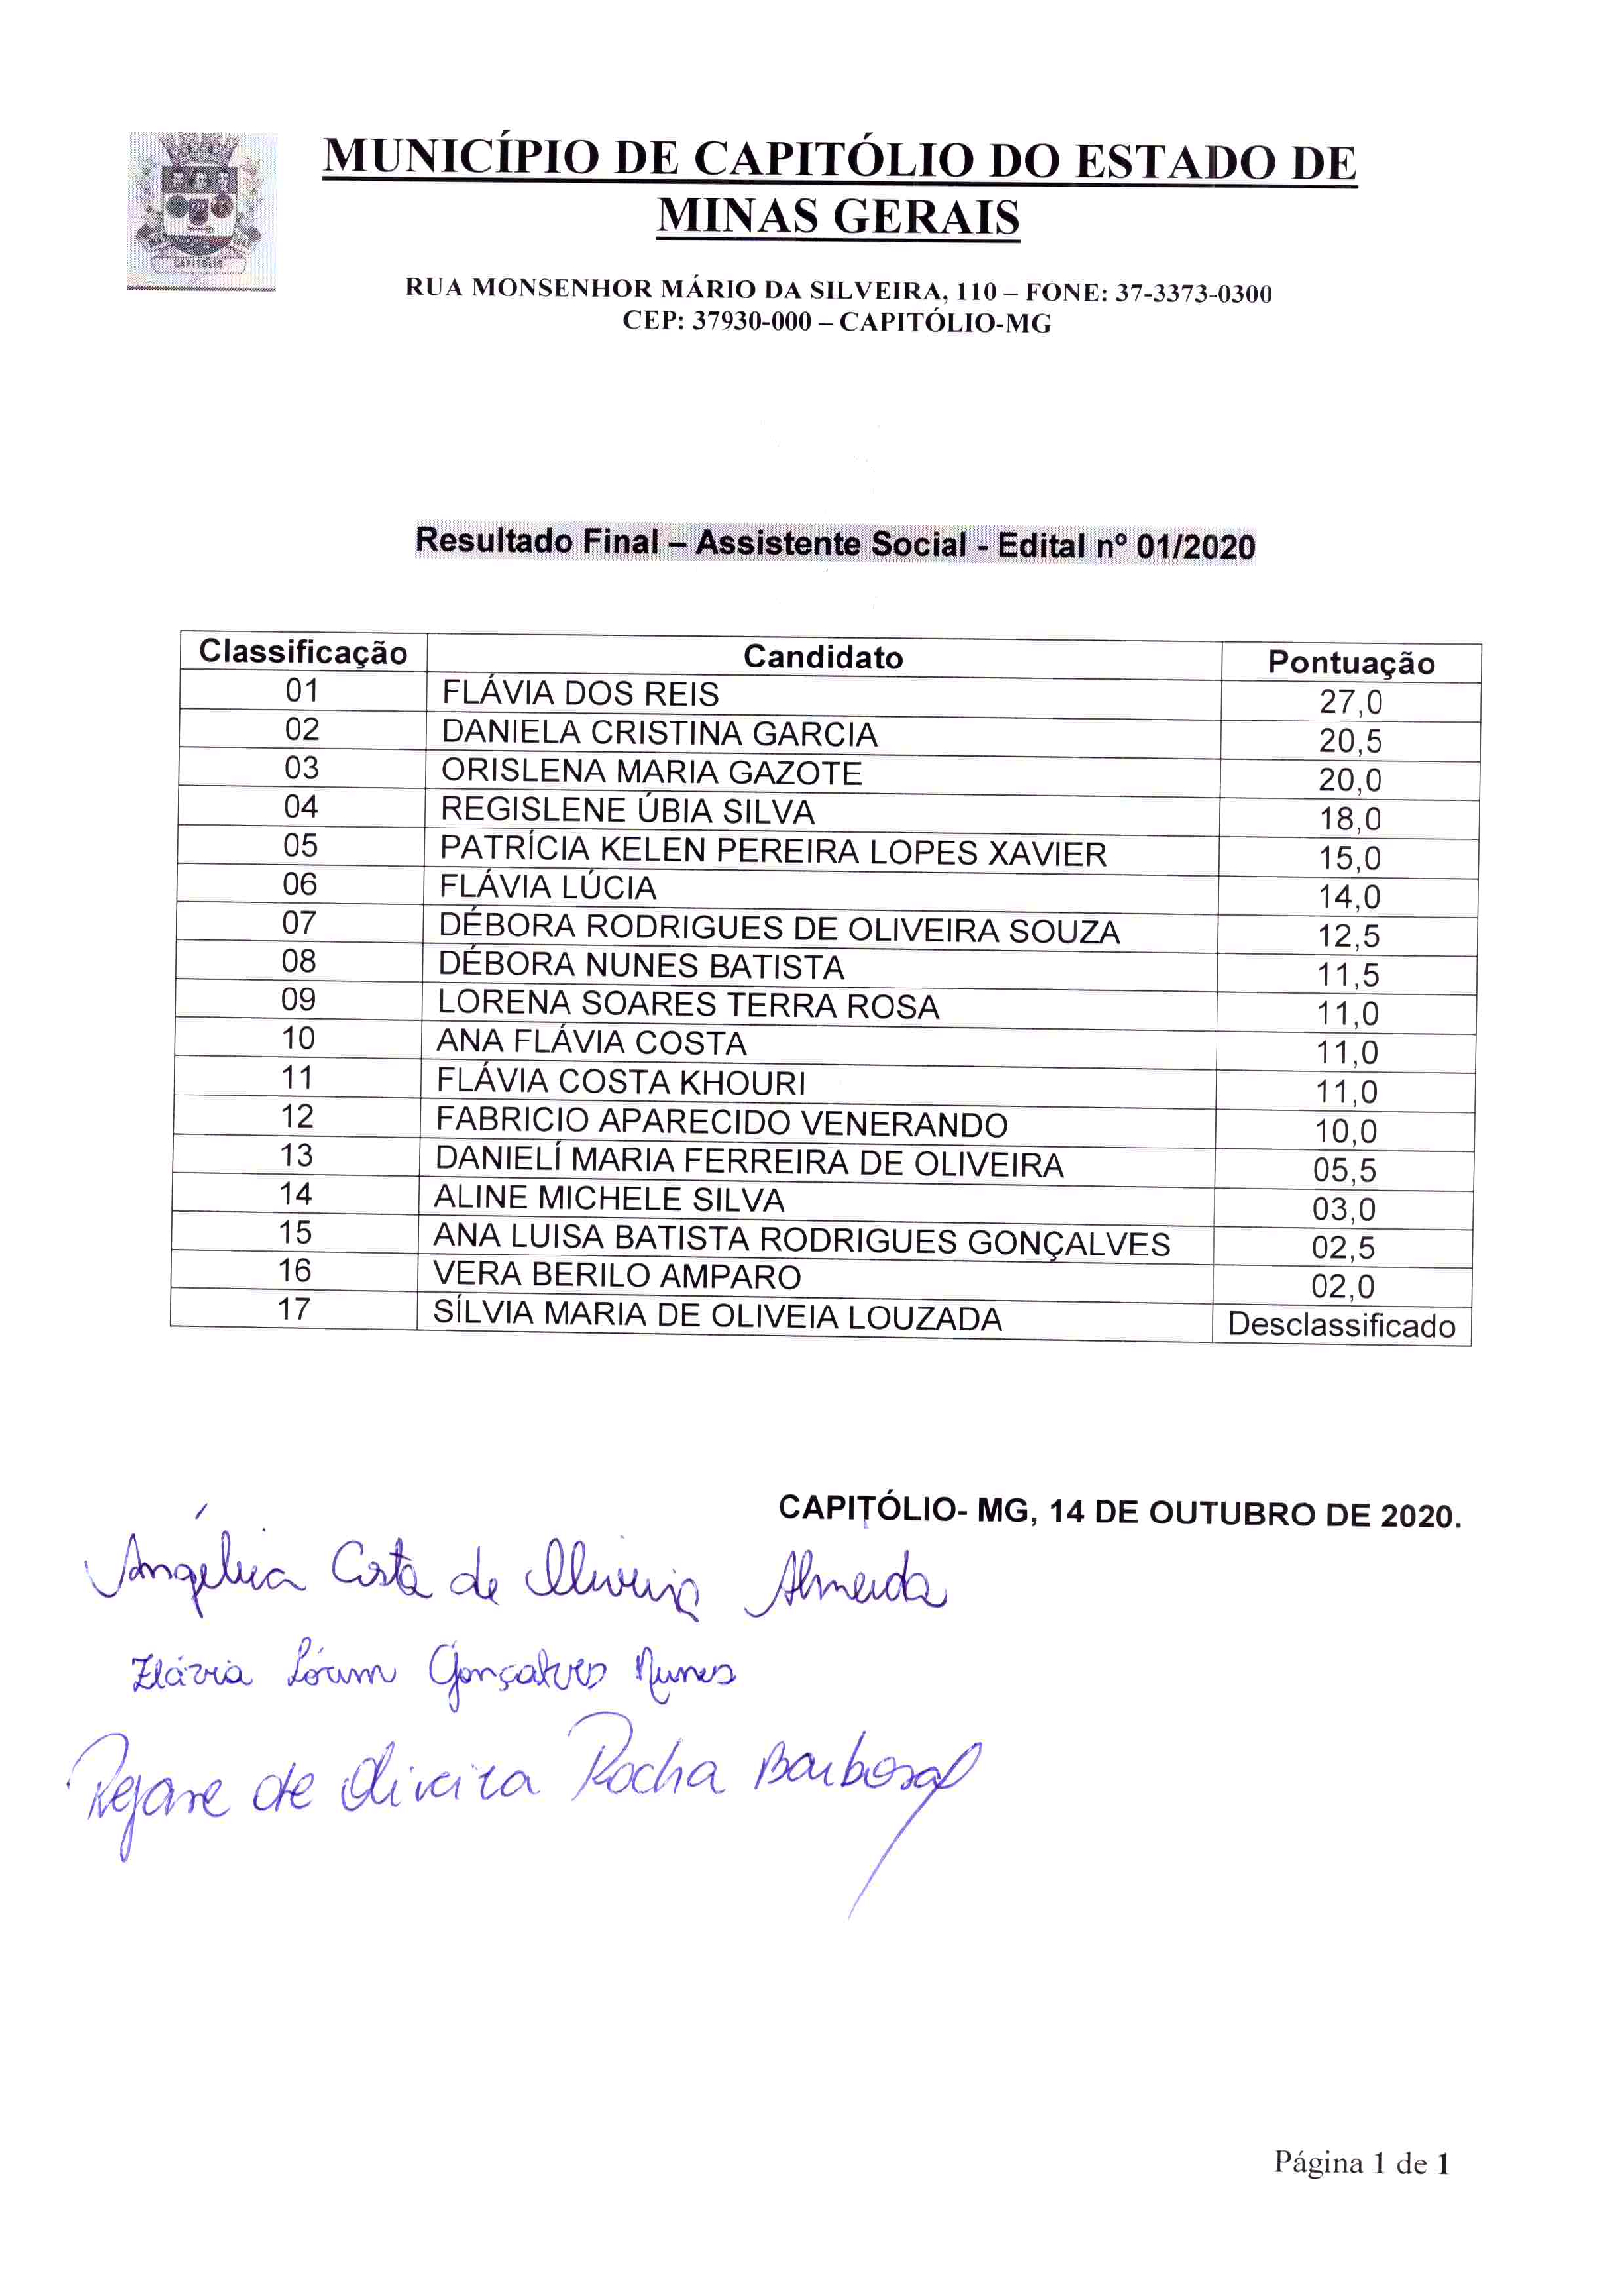 MUNICÍPIO DE CAPITÓLIO DO ESTADO DE
MINAS GERAIS
CAPITÓLIO
RUA MONSENHOR MÁRIO DA SILVEIRA, 110 – FONE: 37-3373-0300
CEP: 37930-000 – CAPITÓLIO-MG
Resultado Final – Assistente Social - Edital nº 01/2020
Classificação Candidato Pontuação
01 FLÁVIA DOS REIS 27,0
02 DANIELA CRISTINA GARCIA 20,5
03 ORISLENA MARIA GAZOTE 20,0
04 REGISLENE ÚBIA SILVA 18,0
05 PATRÍCIA KELEN PEREIRA LOPES XAVIER 15,0
06 FLÁVIA LÚCIA 14,0
07 DÉBORA RODRIGUES DE OLIVEIRA SOUZA 12,5
08 DÉBORA NUNES BATISTA 11,5
09 LORENA SOARES TERRA ROSA 11,0
10 ANA FLÁVIA COSTA 11,0
11 FLÁVIA COSTA KHOURI 11,0
12 FABRICIO APARECIDO VENERANDO 10,0
13 DANIELÍ MARIA FERREIRA DE OLIVEIRA 05,5
14 ALINE MICHELE SILVA 03,0
15 ANA LUISA BATISTA RODRIGUES GONÇALVES 02,5
16 VERA BERILO AMPARO 02,0
17 SÍLVIA MARIA DE OLIVEIA LOUZADA Desclassificado
CAPITÓLIO- MG, 14 DE OUTUBRO DE 2020.
Angélica Costa de Oliveira Almeida
Flávia Gonçalves Nunes
Rejane de Oliveira Rocha Barbosa
Página 1 de 1